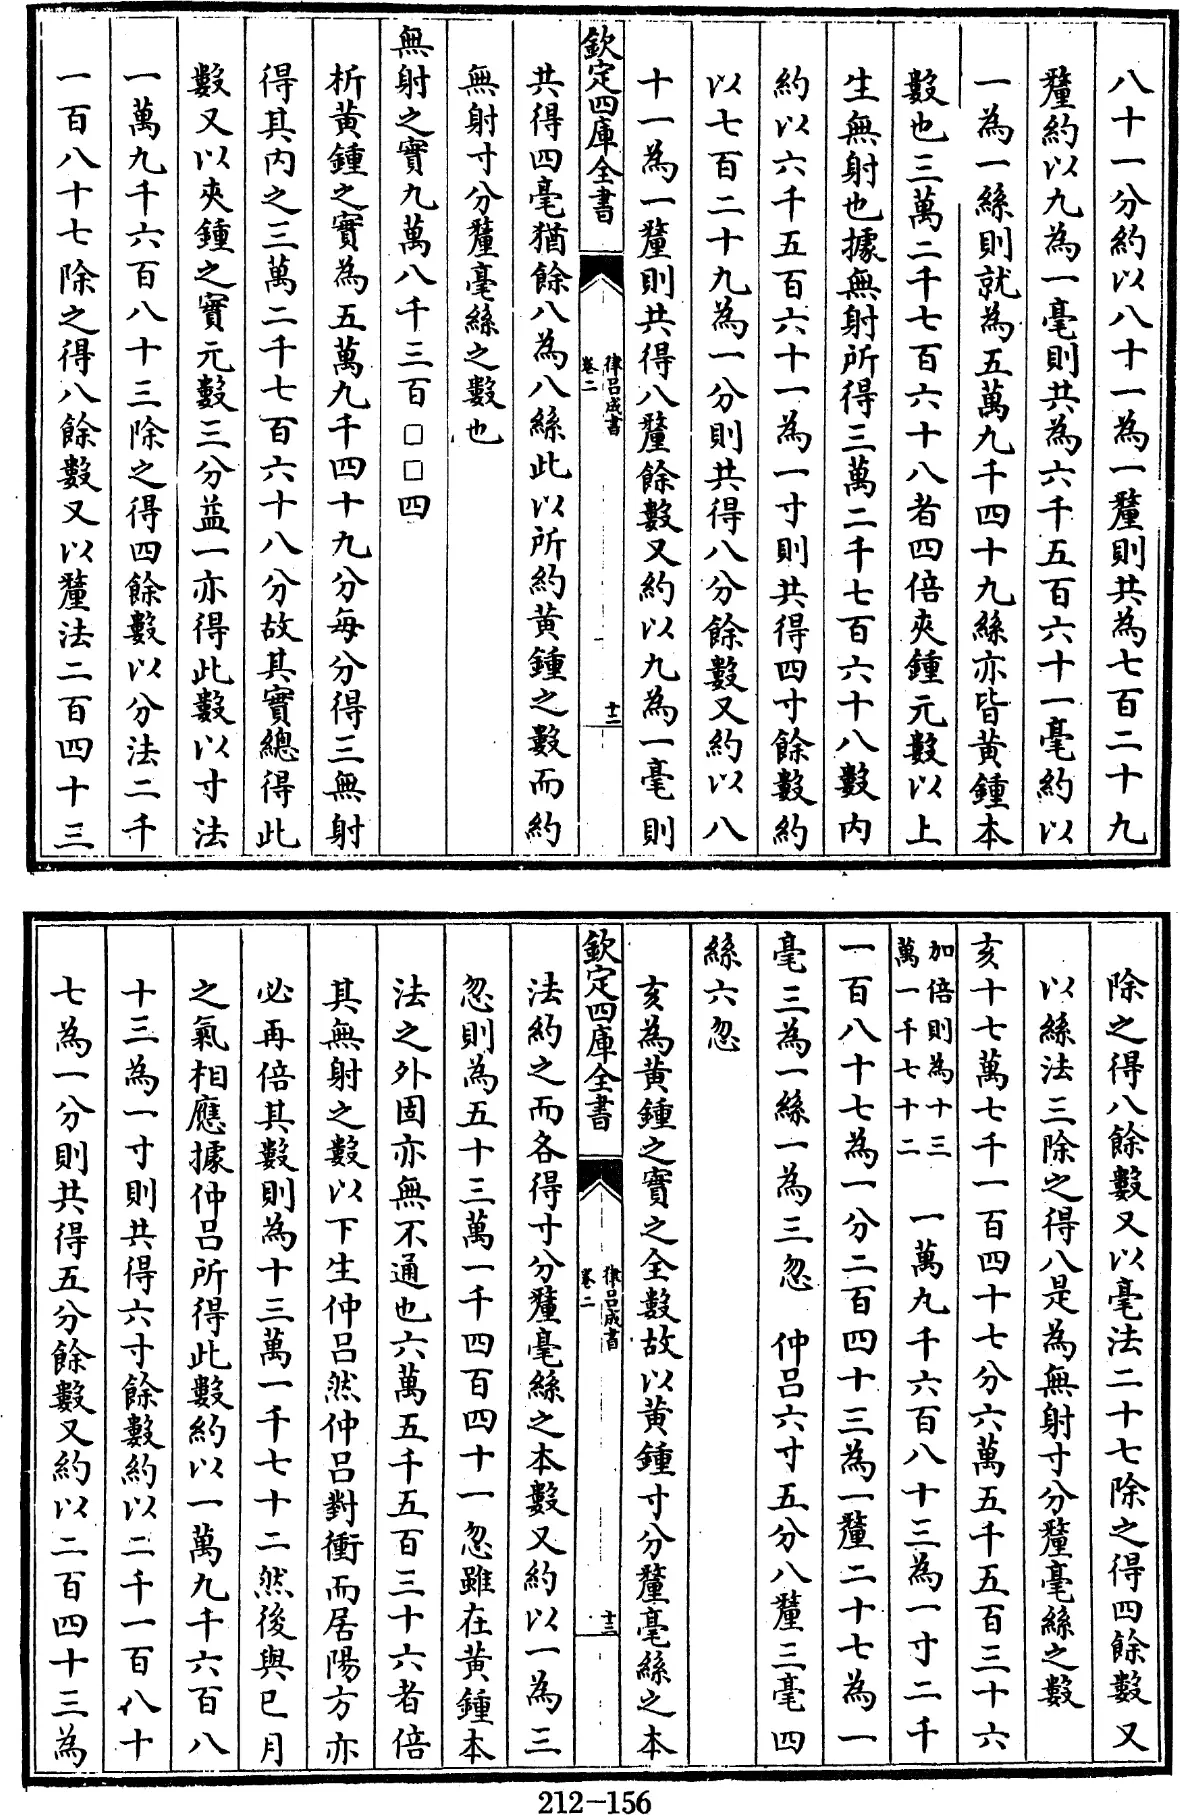 八十一分約以八十一為一釐則共為七百二十九
釐約以九為一毫則共為六千五百六十一毫約以
一為一絲則就為五萬九千四十九絲亦皆黄鍾本
數也三萬二千七百六十八者四倍夾鍾元數以上
生無射也據無射所得三萬二千七百六十八數内
約以六千五百六十一為一寸則共得四寸餘數約
以七百二十九為一分則共得八分餘數又約以八
十一為一釐則共得八釐餘數又約以九為一毫則
欽定四庫全書
律吕成書
卷二
十二
共得四毫猶餘八為八絲此以所約黄鍾之數而約
無射寸分釐毫絲之數也
無射之實九萬八千三百□□四
析黄鍾之實為五萬九千四十九分每分得三無射
得其内之三萬二千七百六十八分故其實總得此
數又以夾鍾之實元數三分益一亦得此數以寸法
一萬九千六百八十三除之得四餘數以分法二千
一百八十七除之得八餘數又以釐法二百四十三
除之得八餘數又以毫法二十七除之得四餘數又
以絲法三除之得八是為無射寸分釐毫絲之數
亥十七萬七千一百四十七分六萬五千五百三十六
加倍則為十三
萬一千七十二
一萬九千六百八十三為一寸二千
一百八十七為一分二百四十三為一釐二十七為一
毫三為一絲一為三忽　仲吕六寸五分八釐三毫四
絲六忽
亥為黄鍾之實之全數故以黄鍾寸分釐毫絲之本
欽定四庫全書
律吕成書
卷二
十三
法約之而各得寸分釐毫絲之本數又約以一為三
忽則為五十三萬一千四百四十一忽雖在黄鍾本
法之外固亦無不通也六萬五千五百三十六者倍
其無射之數以下生仲吕然仲吕對衝而居陽方亦
必再倍其數則為十三萬一千七十二然後與巳月
之氣相應據仲吕所得此數約以一萬九千六百八
十三為一寸則共得六寸餘數約以二千一百八十
七為一分則共得五分餘數又約以二百四十三為
212-156